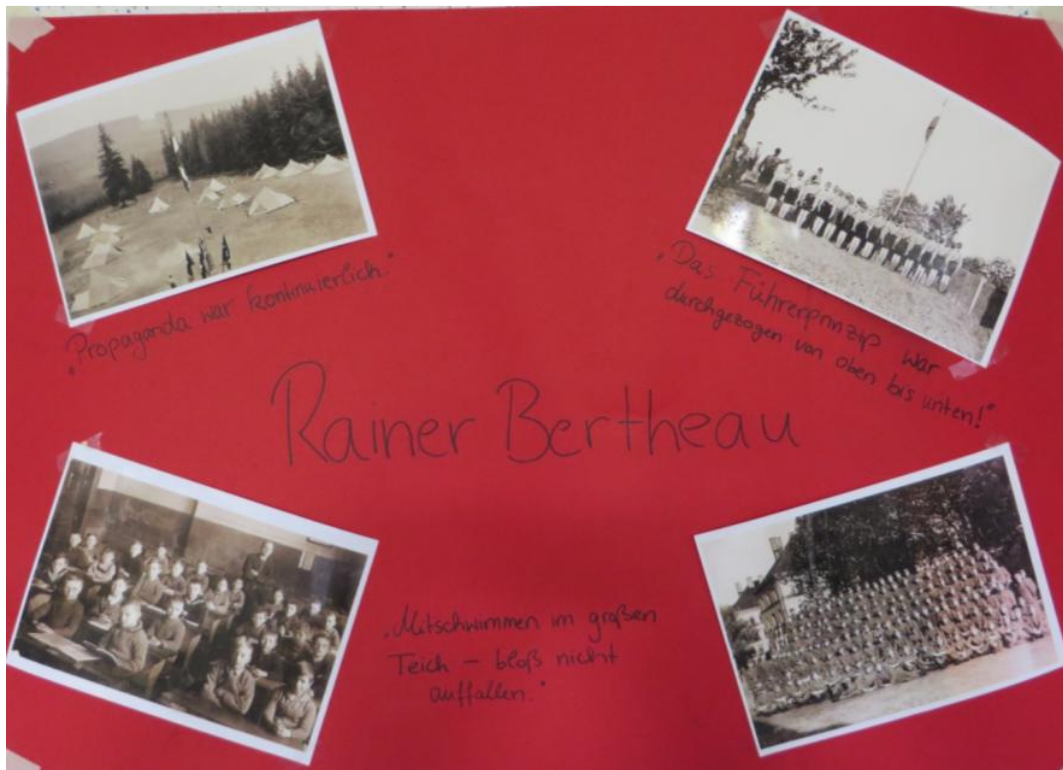 „Propaganda war kontinuierlich."
„Das Führerprinzip war
durchgezogen von oben bis unten!"
Rainer Bertheau
„Mitschwimmen im großen
Teich – bloß nicht
auffallen."